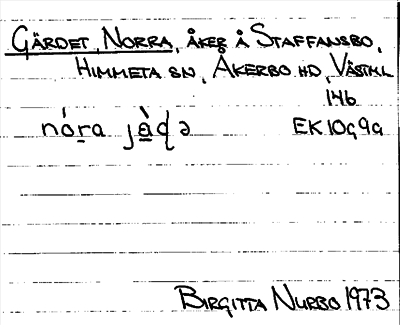 GÄRDET, NORRA, ÅKER Å STAFFANSBO,
HIMMETA SN, ÅKERBO HD, VÄSTML
146
nó̱ra jà̱ɖə EK 10g9g
BIRGITTA NURBO 1973